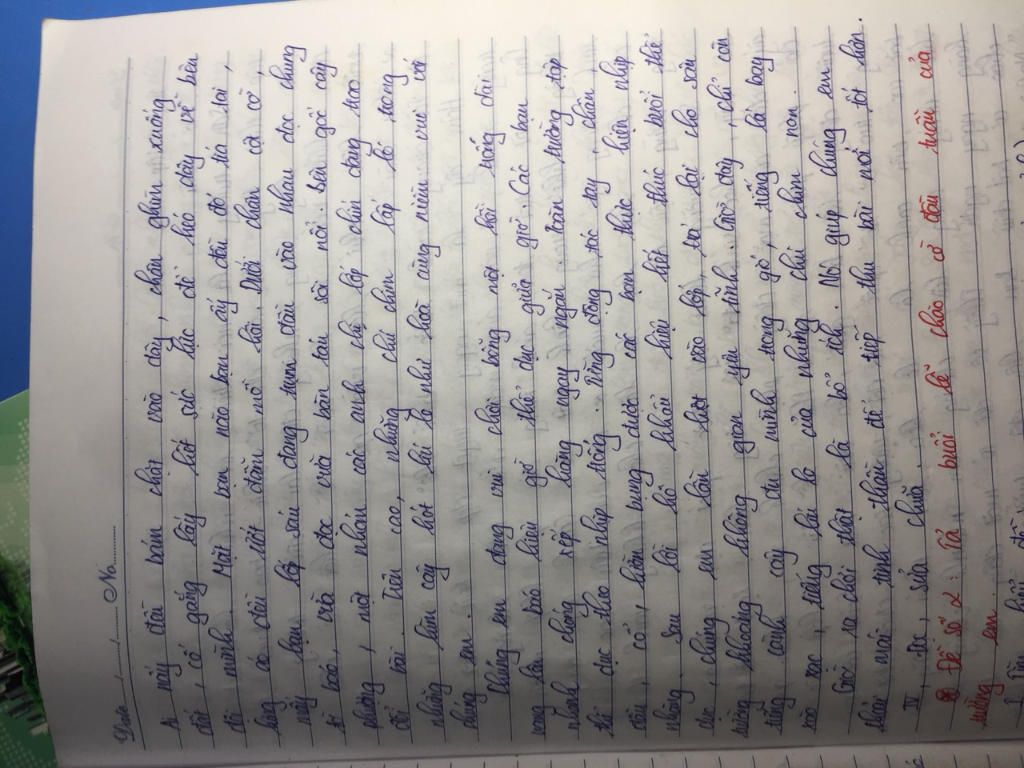 Date ...../...../..... No...........
ai nấy đều bám chặt vào dây, chân ghìm xuống
đất, cố gắng lấy hết sức lực để kéo dây về bên
đội mình. Mặt bạn nào bạn ấy đều đỏ tía tai,
lưng áo đều ướt đẫm mồ hôi. Dưới chân cột cờ,
mấy bạn lớp sáu đang trụm đầu vào nhau đọc chung
tờ báo, vừa đọc vừa bàn tán sôi nổi. Bên gốc cây
phượng, một nhóm các anh chị lớp chín đang trao
đổi bài. Trên cao, những chú chim lấp ló trong
những tán cây hót líu lo như hoà cùng niềm vui với
chúng em.
Chúng em đang vui chơi bỗng một hồi trống dài
vang lên báo hiệu giờ thể dục giữa giờ. Các bạn
nhanh chóng xếp hàng ngay ngắn. Toàn trường tập
thể dục theo nhịp trống. Từng động tác tay, chân,
đầu, cổ, liên bung được các bạn thực hiện nhịp
nhàng. Sau hồi hô khẩu hiệu kết thúc buổi thể
dục, chúng em lần lượt vào lớp, trả lại cho sân
trường khoảng không gian yên tĩnh. Giờ đây, chỉ còn
từng cành cây đu mình trong gió, tiếng lá bay
xào xạc, tiếng líu lo của những chú chim non.
Giờ ra chơi thật là bổ ích. Nó giúp chúng em
thoải mái tinh thần để tiếp thu bài mới tốt hơn.
IV, Đọc, sửa chữa.
Đề số 2: Tả buổi lễ chào cờ đầu tuần của
trường em.